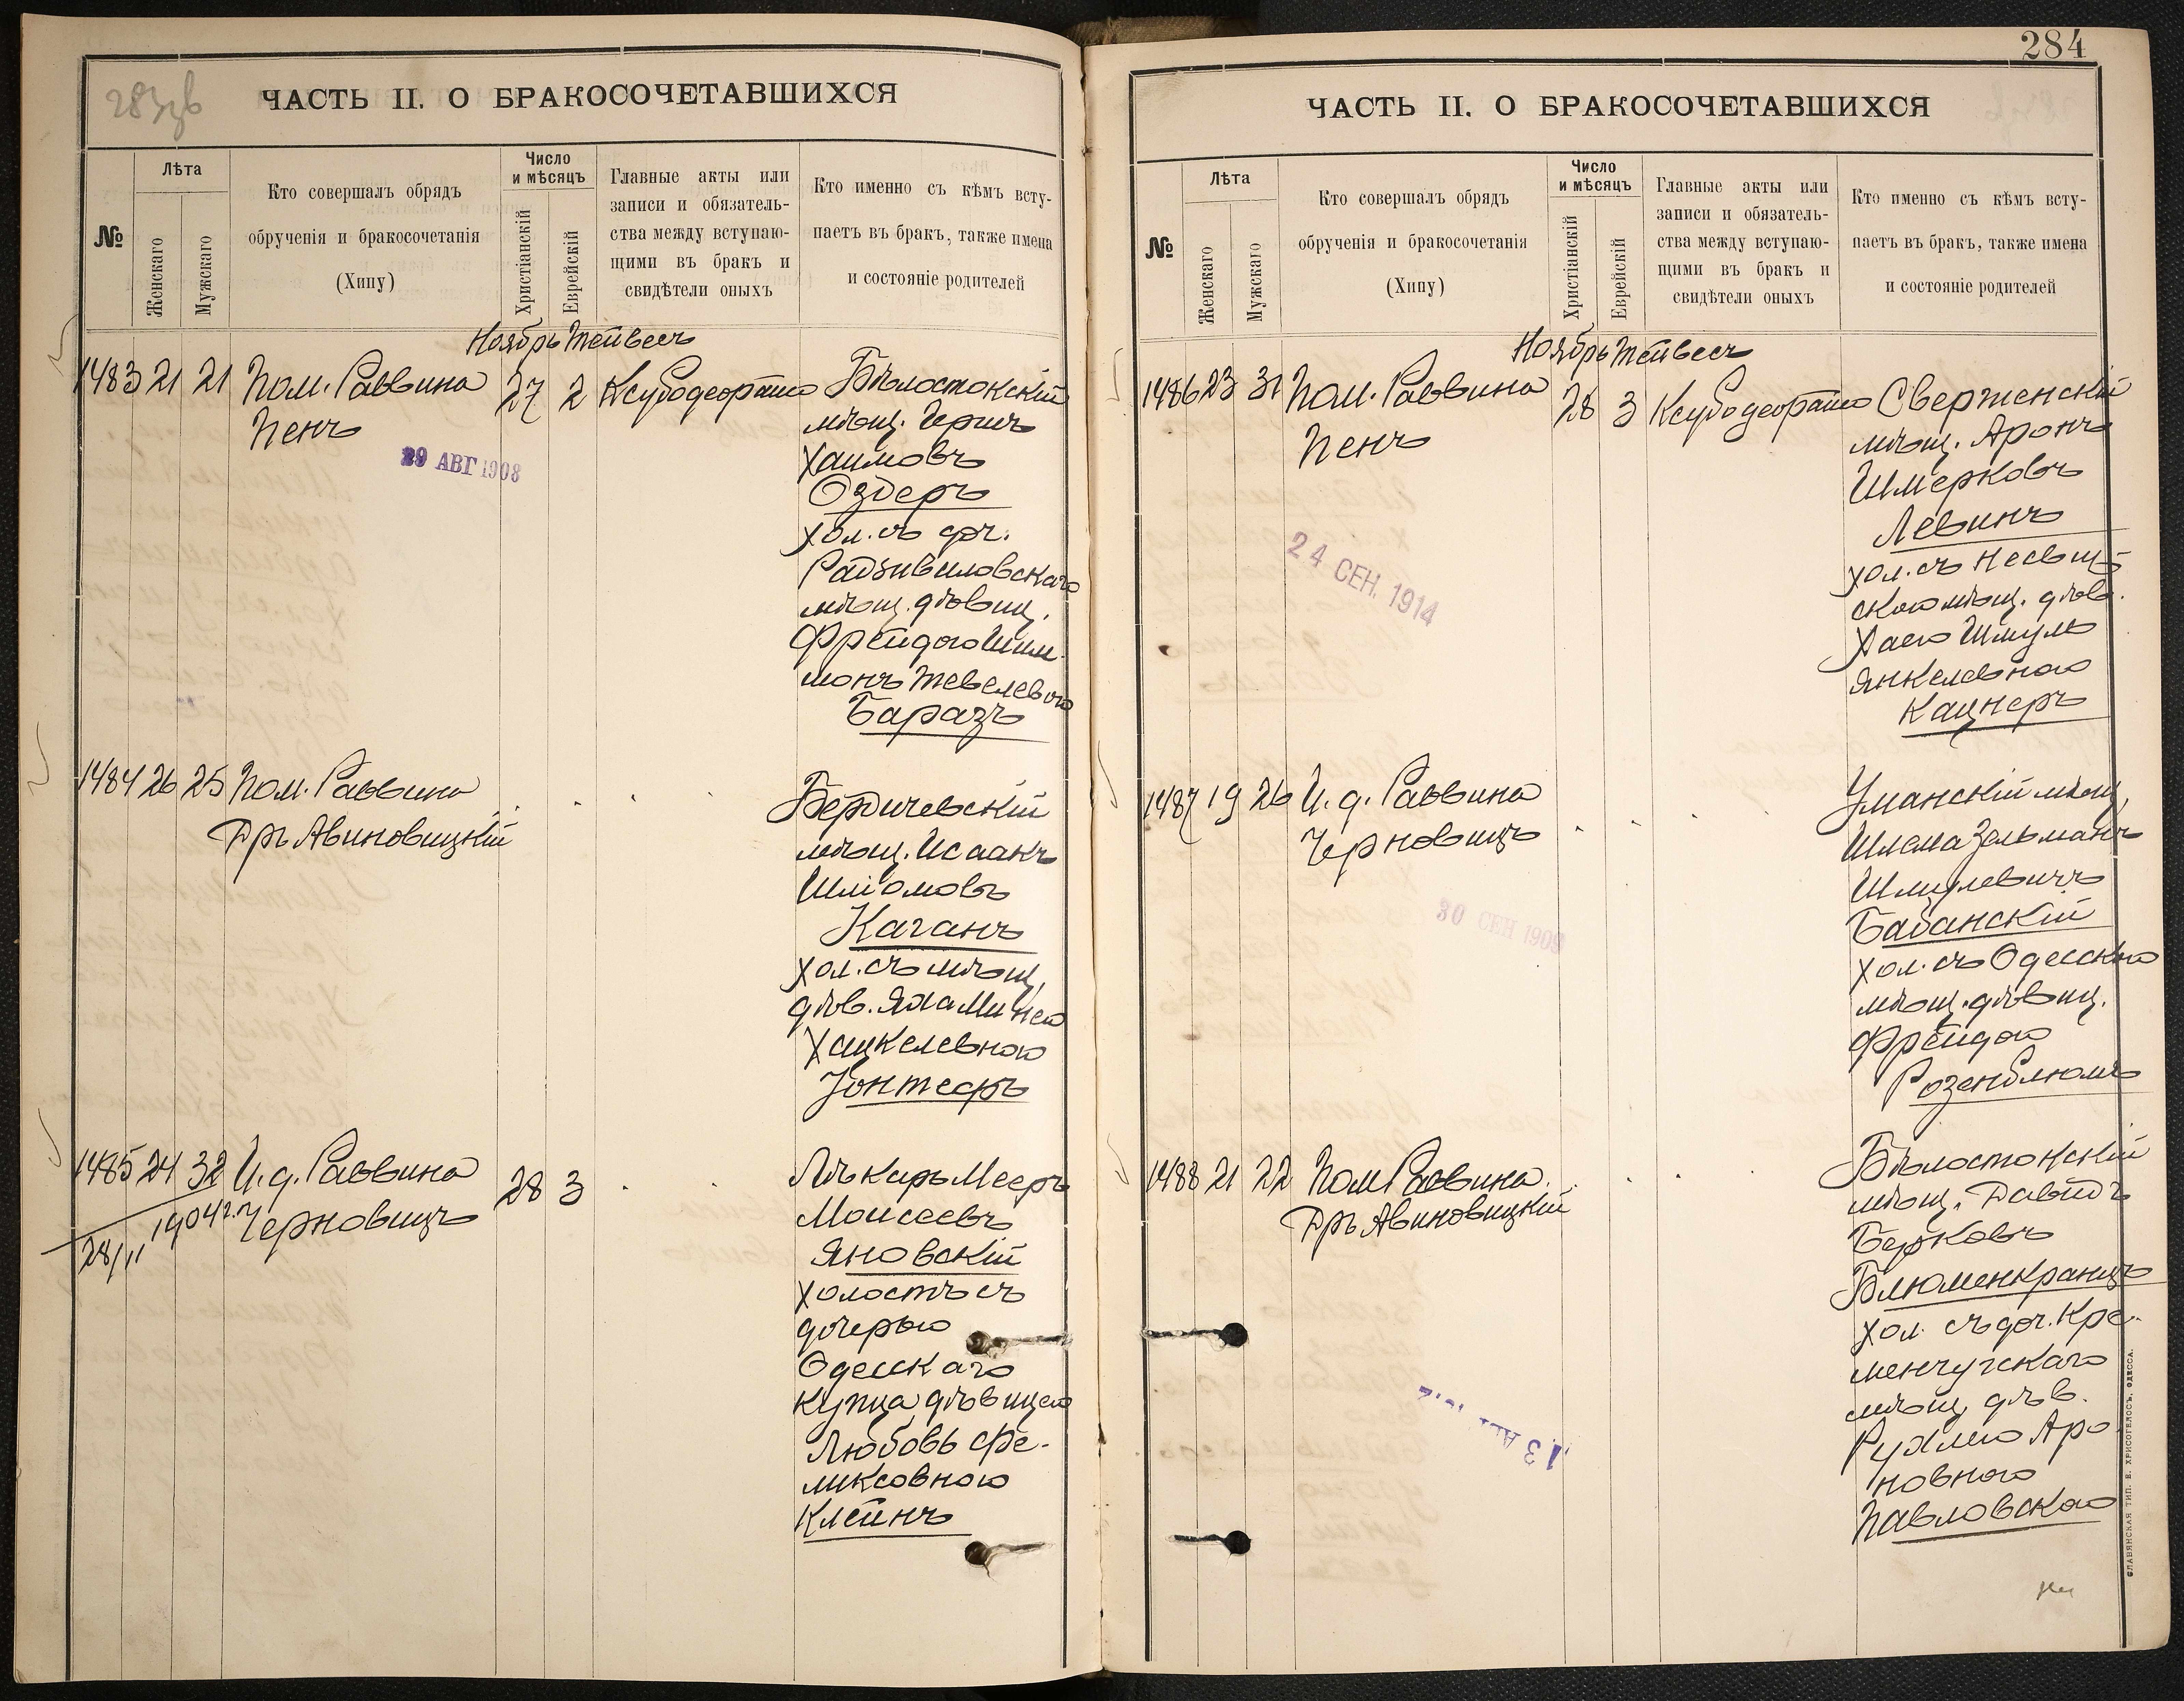 283об
ЧАСТЬ II. О БРАКОСОЧЕТАВШИХСЯ
№
Лѣта
Женскаго
Мужскаго
Кто совершалъ обрядъ
обрученія и бракосочетанія
(Хипу)
Число
и мѣсяцъ
Христіанскій
Еврейскій
Главные акты или
записи и обязатель-
ства между вступаю-
щими въ бракъ и
свидѣтели оныхъ
Кто именно съ кѣмъ всту-
паетъ въ бракъ, также имена
и состояніе родителей
Ноябрь Тейвесъ
1483 21 21 Пом. Раввина
Пенъ
27 2
29 АВГ 1908
Бѣлостокскій
мѣщ. Гершъ
Хаимовъ
Оздеръ
хол. съ доч.
Радзивиловскаго
мѣщ. дѣвиц.
Фрейдою Шим-
монъ Тевелевою
Баразъ
1484 26 25 Пом. Раввина
Д-ръ Авиновицкій
Бердичевскій
мѣщ. Исаакъ
Шліомовъ
Каганъ
хол. съ мѣщ.
дѣв.
Хацкелевною
1485 24 32 И. д. Раввина
Черновицъ
28/11 1904 г.
28 3
Лѣкарь Мееръ
Моисеевъ
Яновскій
холостъ съ
дочерью
Одесскаго
купца дѣвицею
Любовь Фе-
ликсовною
Клейнъ
284
ЧАСТЬ II. О БРАКОСОЧЕТАВШИХСЯ
№
Лѣта
Женскаго
Мужскаго
Кто совершалъ обрядъ
обрученія и бракосочетанія
(Хипу)
Число
и мѣсяцъ
Христіанскій
Еврейскій
Главные акты или
записи и обязатель-
ства между вступаю-
щими въ бракъ и
свидѣтели оныхъ
Кто именно съ кѣмъ всту-
паетъ въ бракъ, также имена
и состояніе родителей
Ноябрь Тейвесъ
1486 23 31 Пом. Раввина
Пенъ
28 3
24 СЕН. 1914
Сверженскій
мѣщ. Аронъ
Шмерковъ
Левинъ
хол. съ Несвиж-
скою мѣщ. дѣв.
Хаею Шмуль
Янкелевною
Кацнеръ
1487 19 26 И. д. Раввина
Черновицъ
30 СЕН 1909
Уманскій мѣщ.
Шлема Зельманъ
Шмулевичъ
Бабанскій
хол. съ Одесскою
мѣщ. дѣвиц.
Фрейдою
Розенблюмъ
1488 21 22 Пом Раввина
Д-ръ Авиновицкій
Бѣлостокскій
мѣщ. Давидъ
Берковъ
Блюменкранцъ
хол. съ доч. Кре-
менчугскаго
мѣщ. дѣв.
Рухлею Аро-
новною
Павловскою
СЛАВЯНСКАЯ ТИП. Е. ХРИСОГЕЛОСЪ, ОДЕССА.